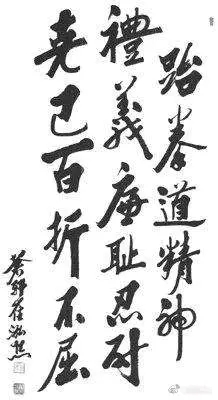 跆拳道精神
禮義廉耻忍耐
克己百折不屈
蔡鄞崔泓熙